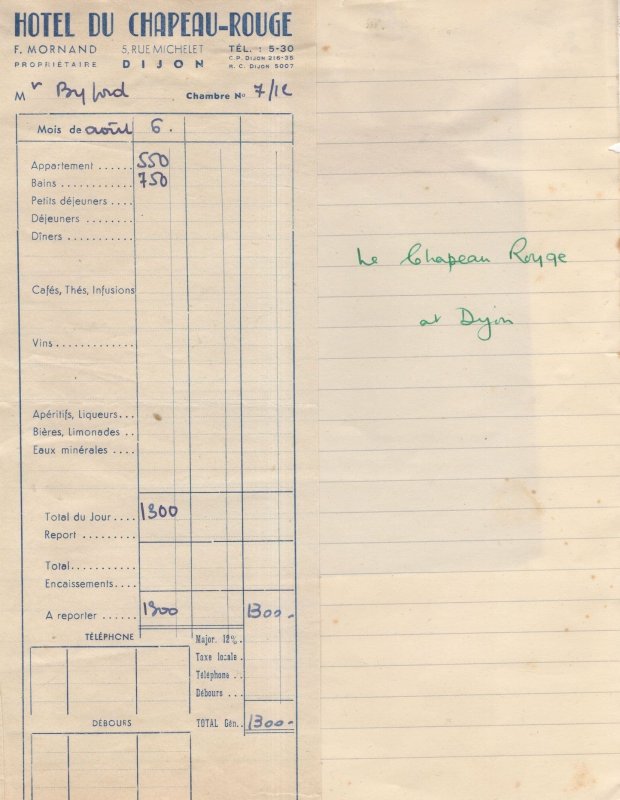 HOTEL DU CHAPEAU-ROUGE
F. MORNAND 5, RUE MICHELET TÉL. : 5-30
PROPRIÉTAIRE DIJON C.P. DIJON 216-35
R. C. DIJON 5007
Mr Byford Chambre No 7/12
Mois de août 6.
Appartement ...... 550
Bains ............ 750
Petits déjeuners ....
Déjeuners ........
Dîners ...........
Cafés, Thés, Infusions
Vins .............
Apéritifs, Liqueurs...
Bières, Limonades ..
Eaux minérales ....
Total du Jour.... 1300
Report .........
Total...........
Encaissements....
A reporter ...... 1300 1300-
TÉLÉPHONE Major. 12%.
Taxe locale .
Téléphone ..
Débours ...
DÉBOURS TOTAL Gén.. 1300-
Le Chapeau Rouge
at Dijon